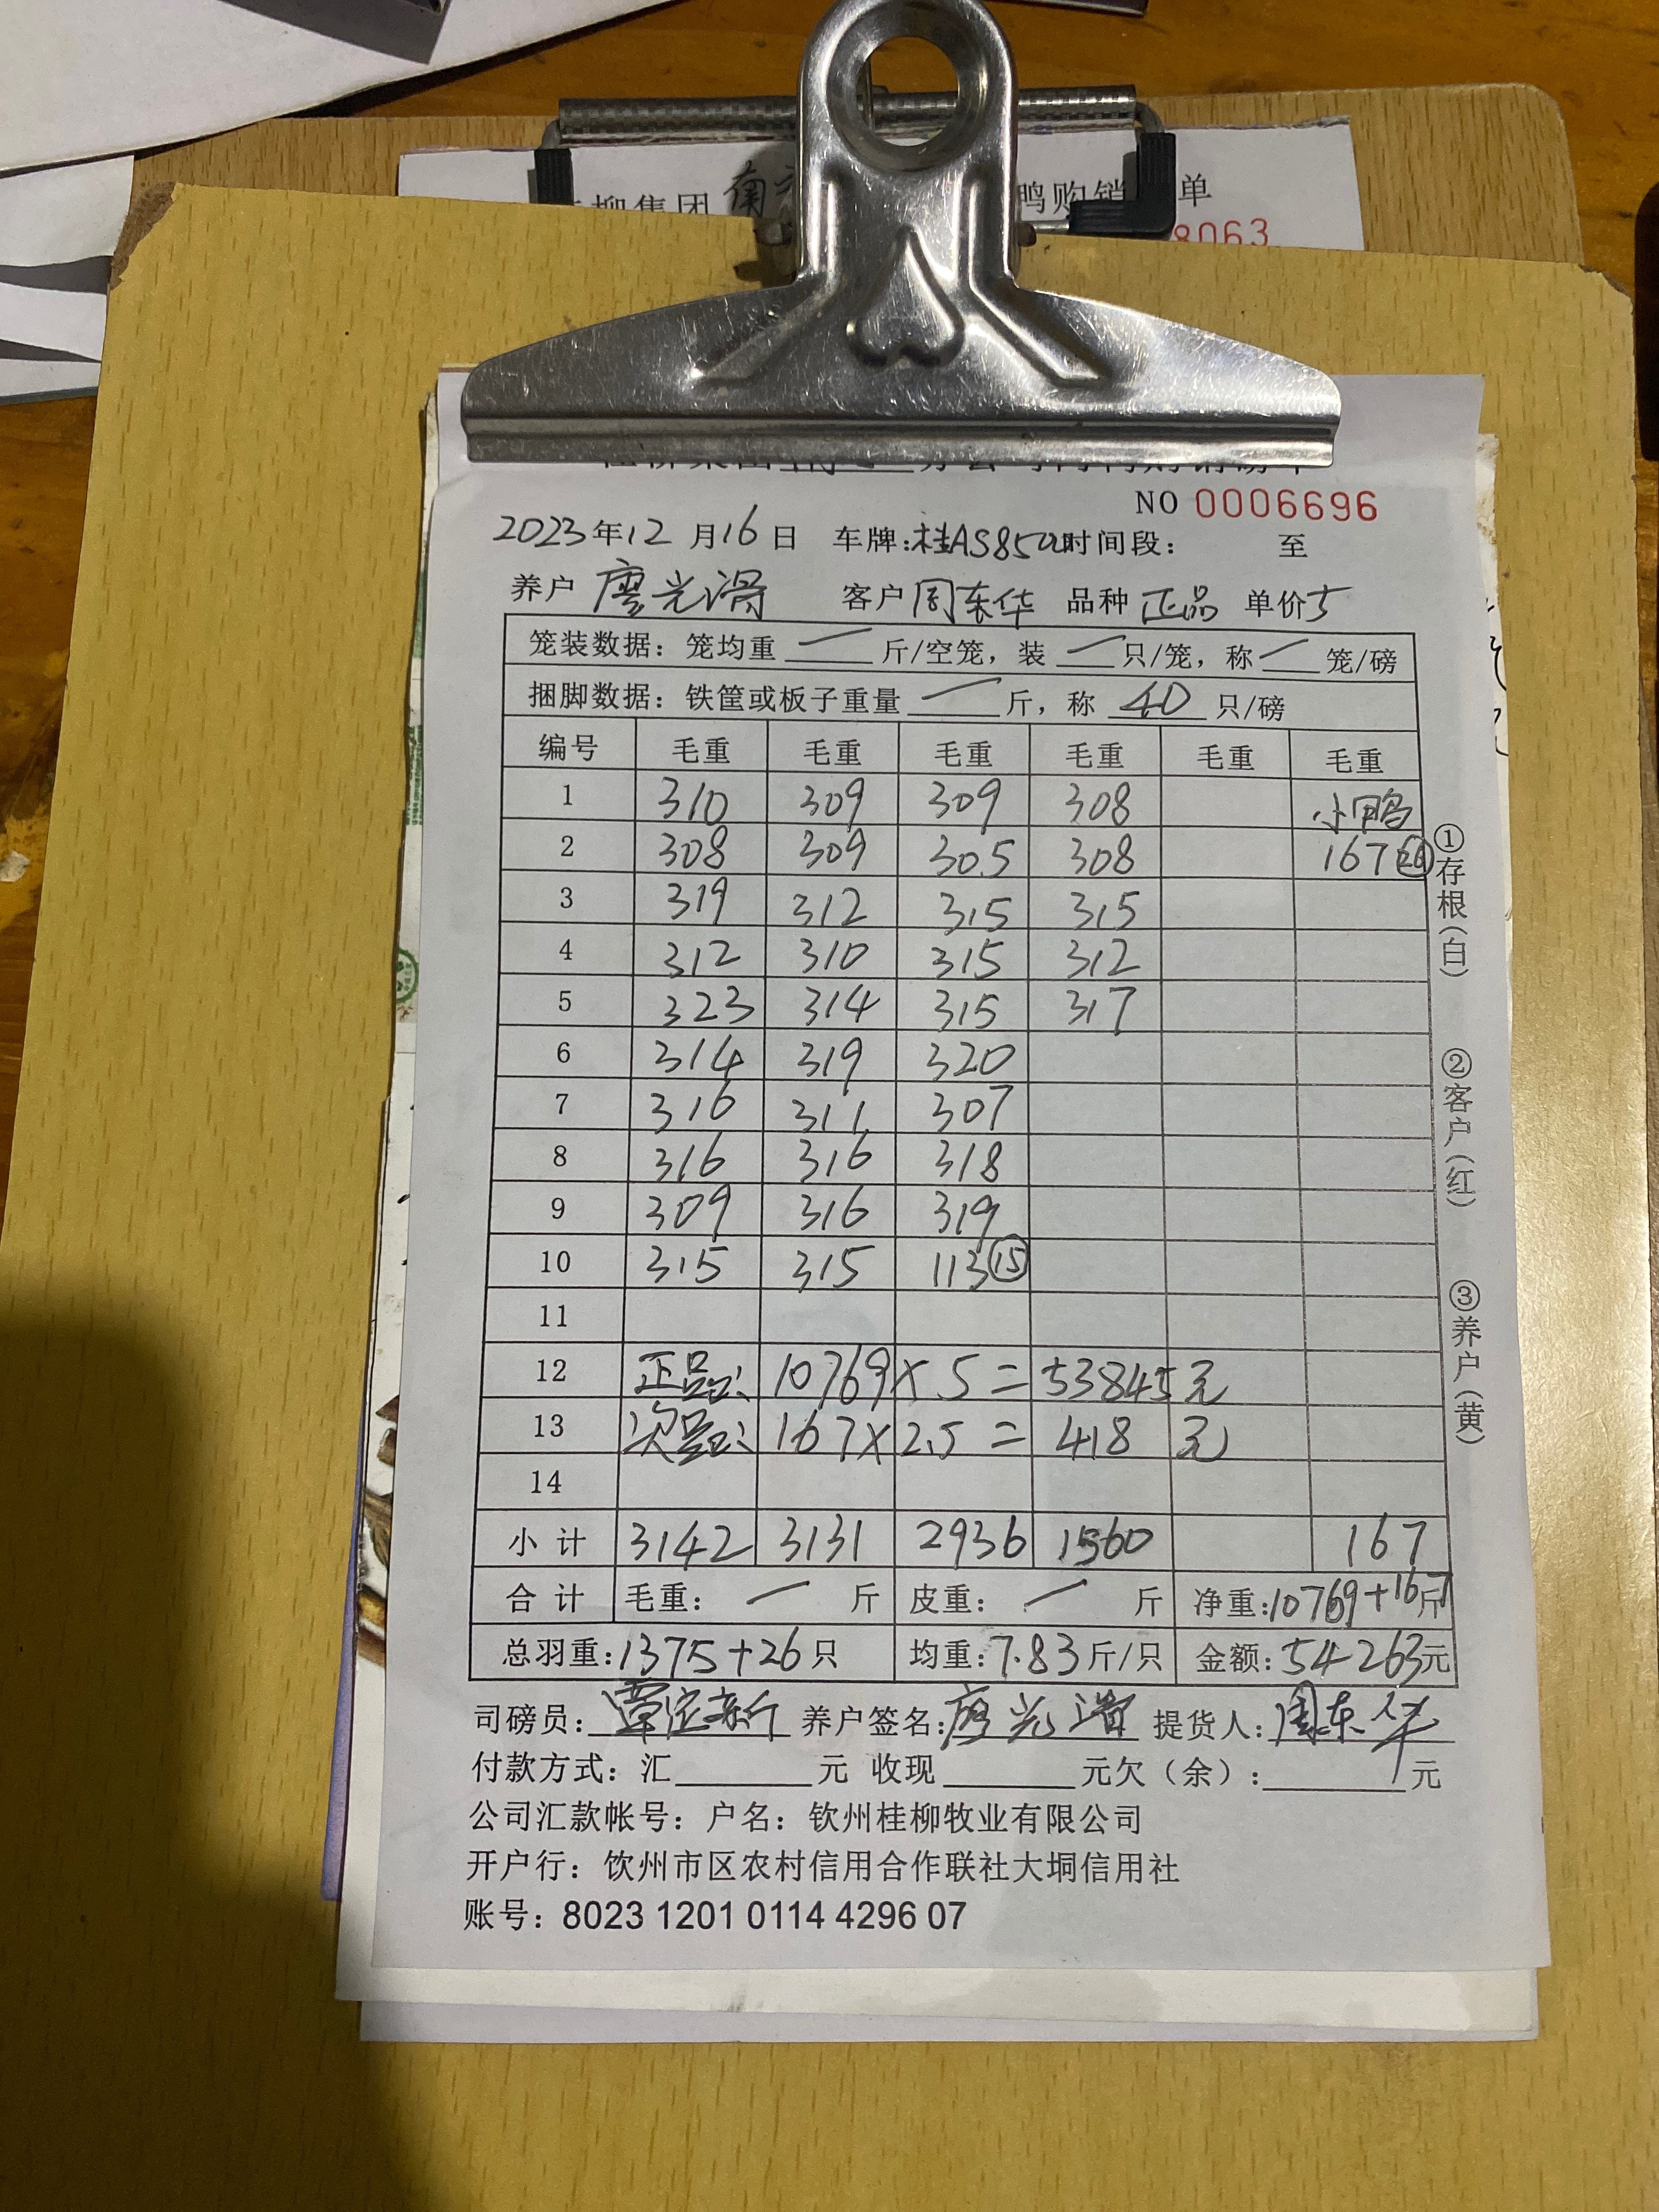 柳集团 南 鸭购销 单
8063
NO 0006696
2023年12月16日 车牌:桂AS85 时间段: 至
养户 廖光滑 客户 周东华 品种 正品 单价5
笼装数据: 笼均重 一 斤/空笼, 装 一 只/笼, 称 一 笼/磅
捆脚数据: 铁筐或板子重量 一 斤, 称 40 只/磅
编号 毛重 毛重 毛重 毛重 毛重 毛重
1 310 309 309 308 小鸭
2 308 309 305 308 167 26
3 319 312 315 315
4 312 310 315 312
5 323 314 315 317
6 314 319 320
7 316 311 307
8 316 316 318
9 309 316 319
10 315 315 113 15
11
12 正品: 10769 × 5 = 53845元
13 次品: 167 × 2.5 = 418 元
14
小计 3142 3131 2936 1560 167
合计 毛重: 一 斤 皮重: 一 斤 净重:10769+167斤
总羽重:1375+26只 均重:7.83斤/只 金额:54263元
司磅员: 覃定新 养户签名: 廖光滑 提货人: 周东华
付款方式: 汇 元 收现 元欠(余): 元
公司汇款帐号: 户名: 钦州桂柳牧业有限公司
开户行: 钦州市区农村信用合作联社大垌信用社
账号: 8023 1201 0114 4296 07
①存根(白)
②客户(红)
③养户(黄)